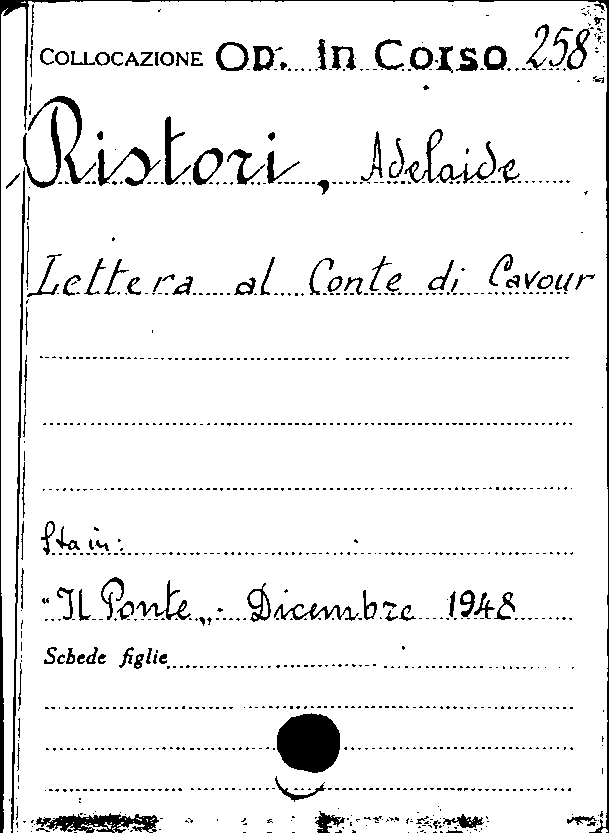 COLLOCAZIONE OD. In Corso 258
Ristori, Adelaide
Lettera al Conte di Cavour
Sta in:
"Il Ponte„. Dicembre 1948
Schede figlie